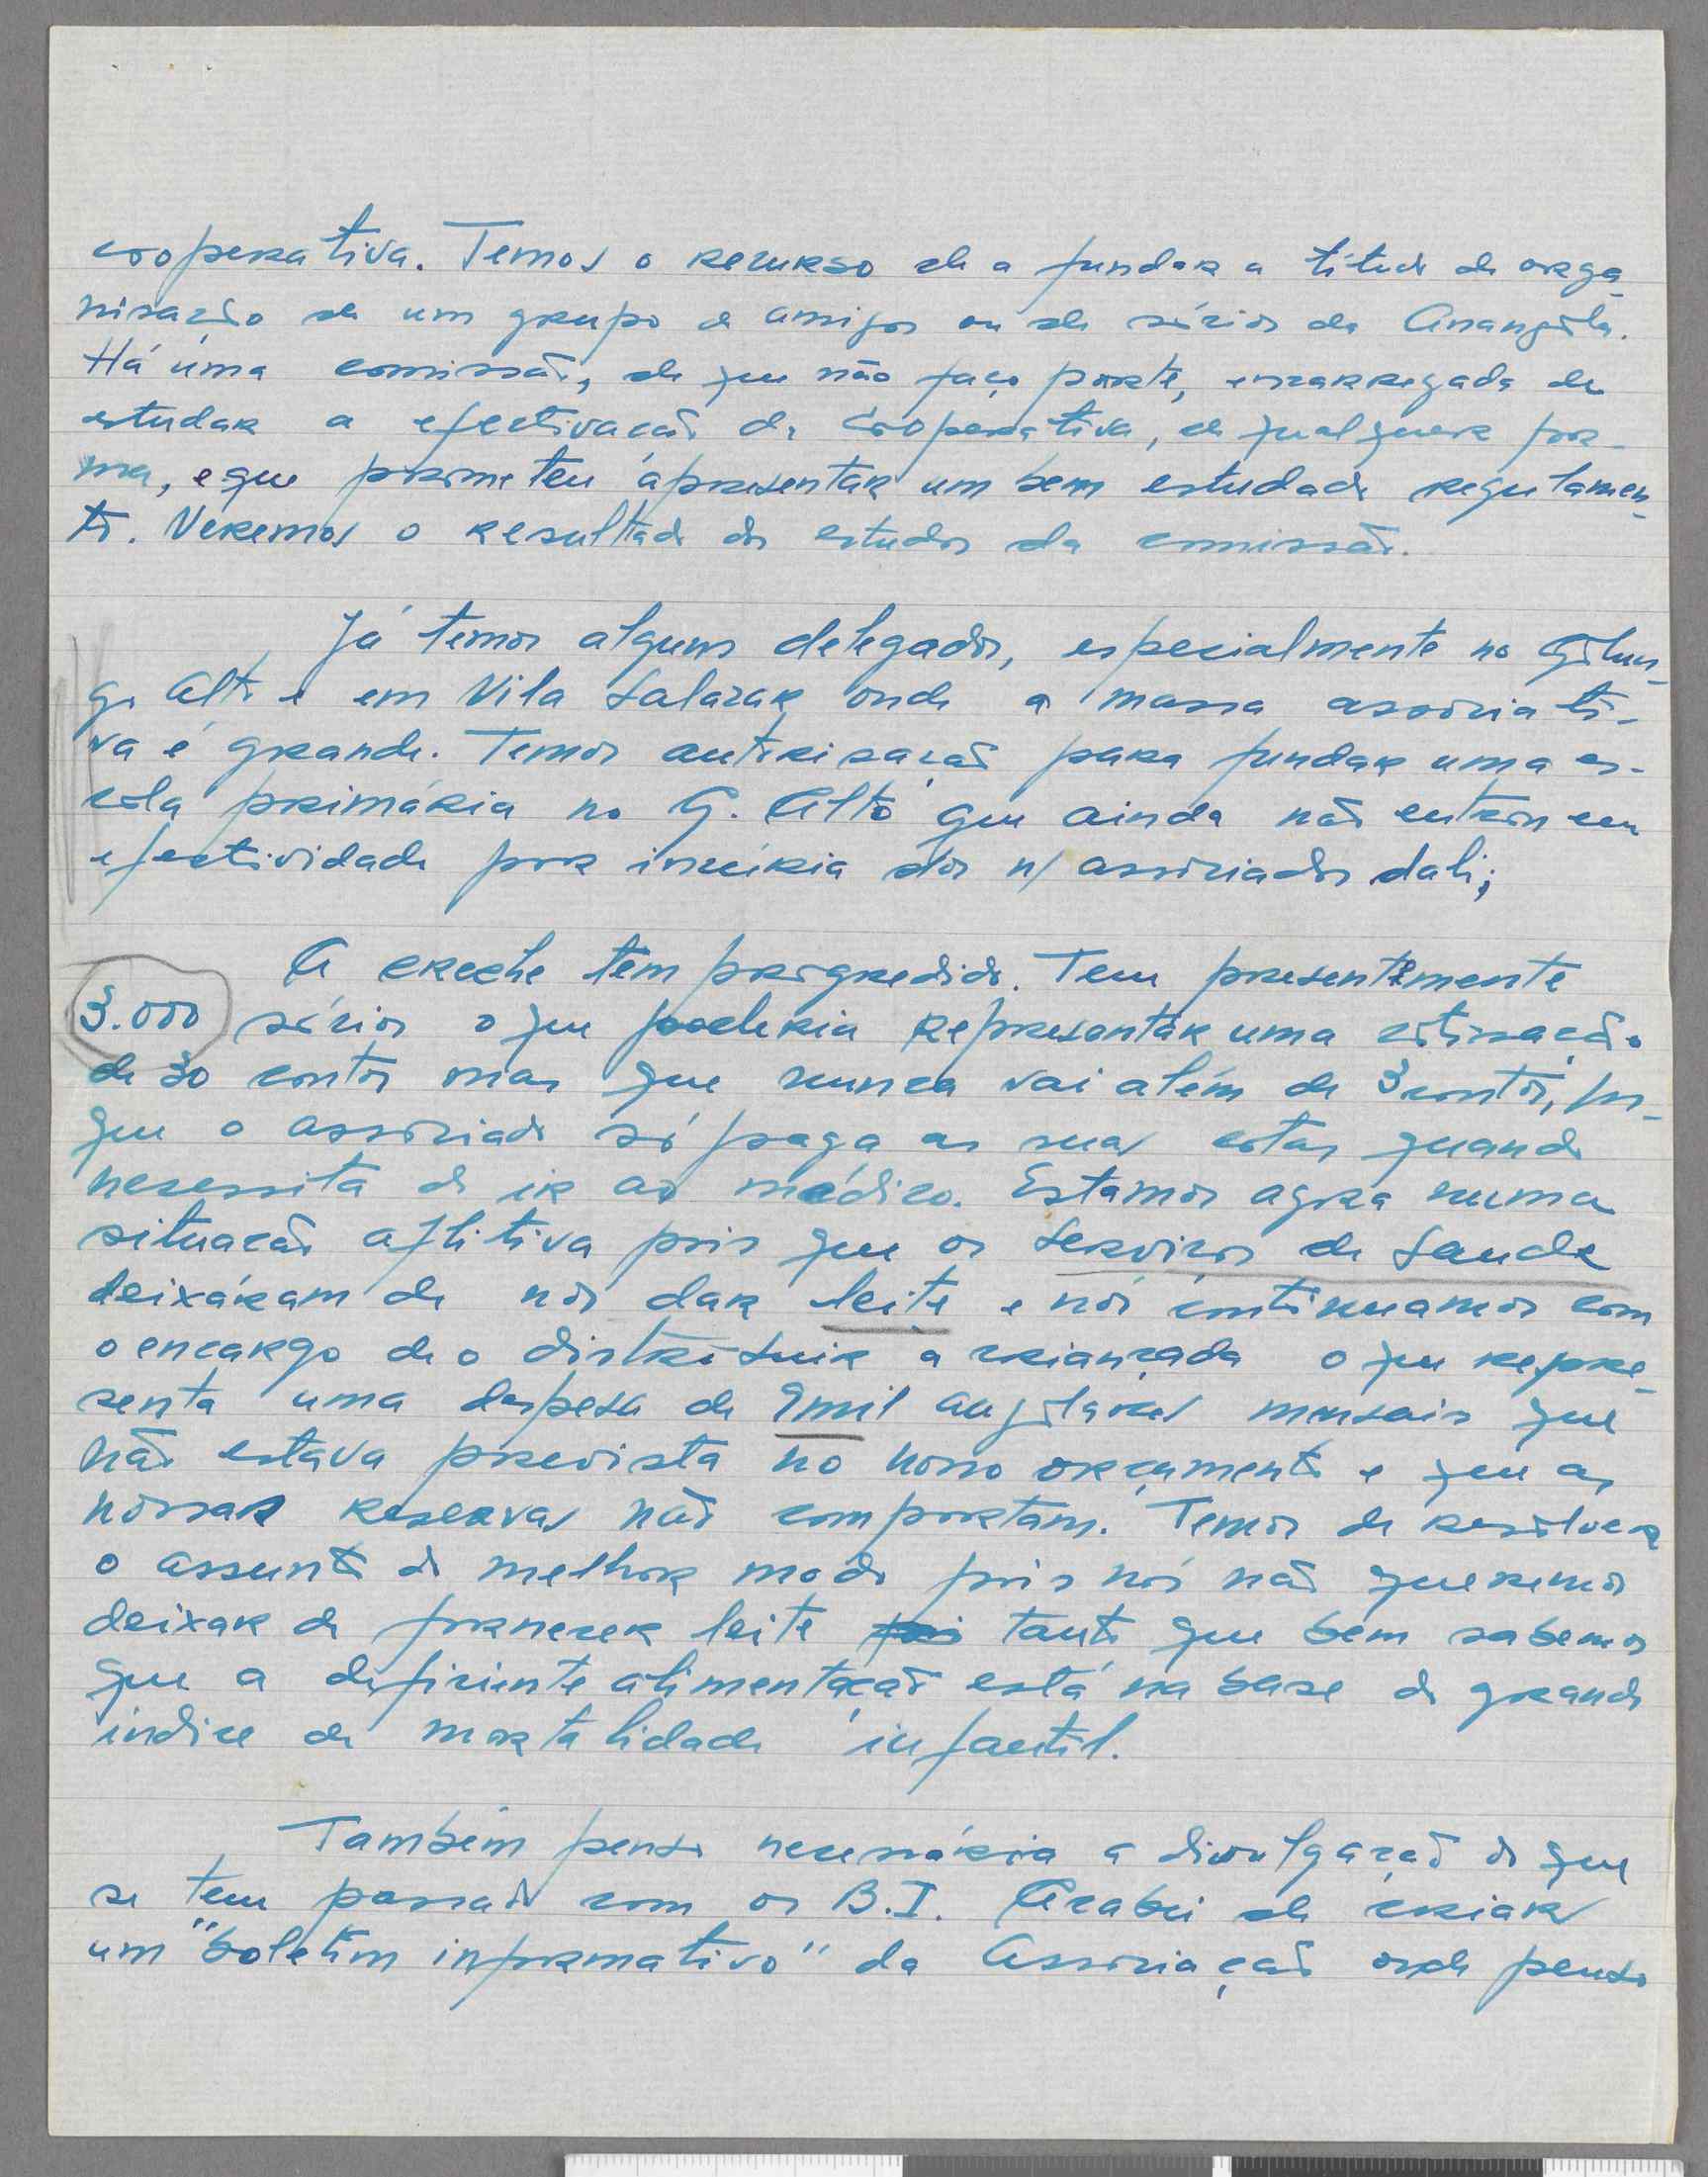 cooperativa. Temos o recurso de a fundar a título de orga-
nisação de um grupo de amigos ou de sócios da Anangola.
Há uma comissão, de que não faço parte, encarregada de
estudar a efectivação da Cooperativa, de qualquer for-
ma, e que prometeu apresentar um bem estudado regulamen-
to. Veremos o resultado dos estudos da comissão.
Já temos alguns delegados, especialmente no Golun-
go Alto e em Vila Salazar, onde a massa associati-
va é grande. Temos autorisação para fundar uma es-
cola primária no G. Alto que ainda não entrou em
efectividade por incúria dos n/ associados dali;
A creche tem progredido. Tem presentemente
3.000 sócios o que poderia representar uma cotisação
de 30 contos mas que nunca vai além de 3 contos, por-
que o associado só paga as suas cotas quando
necessita de ir ao médico. Estamos agora numa
situação aflitiva pois que os Serviços de Saude
deixáram de nos dar leite e nós continuamos com
o encargo de o distribuir a criançada o que repre-
senta uma despesa de 9 mil angolares mensais que
não estava prevista no nosso orçamento e que as
nossas reservas não comportam. Temos de resolver
o assunto do melhor modo pois nós não queremos
deixar de fornecer leite tanto que bem sabemos
que a deficiente alimentação está na base do grande
indice de mortalidade infantil.
Também penso necessária a divulgação do que
se tem passado com os B.I. Acabei de criar
um "boletim informativo" da Associação onde penso